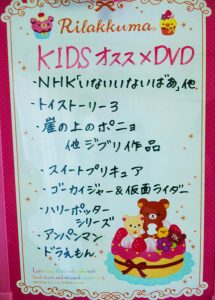 Rilakkuma
KIDSオススメDVD
・NHK「いないいないばあ」他
・トイストーリー3
・崖の上のポニョ
他ジブリ作品
・スイートプリキュア
・ゴーカイジャー&仮面ライダー
・ハリーポッター
シリーズ
・アンパンマン
・ドラえもん